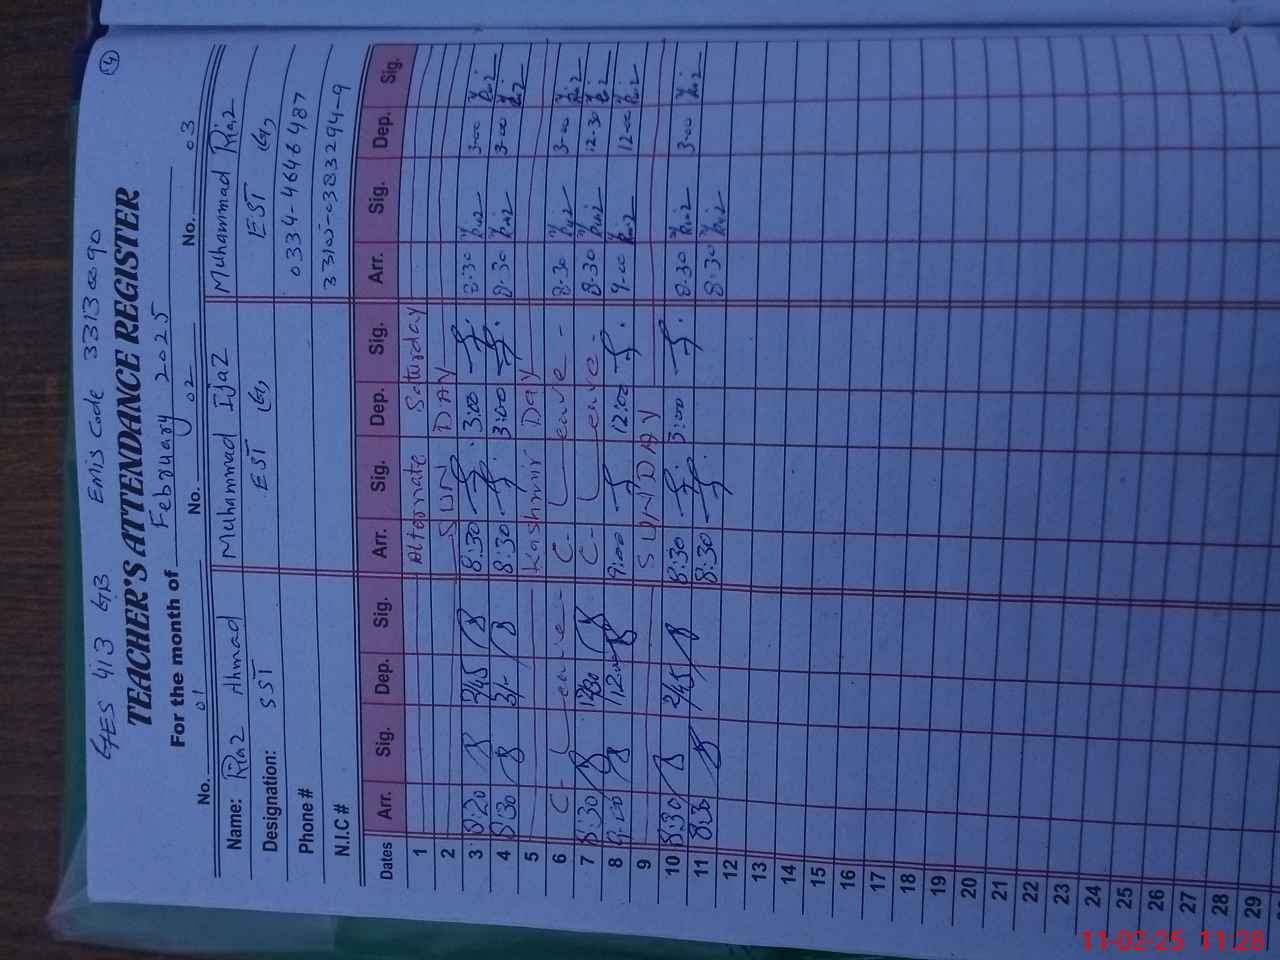 (4)
GES 413 GB Emis Code 33130090
TEACHER'S ATTENDANCE REGISTER
For the month of February 2025
No. 01 No. 02 No. 03
Name: Riaz Ahmad Muhammad Ijaz Muhammad Riaz
Designation: SST EST EST
Phone # 0334-4646487
N.I.C # 33105-0383294-9
Dates Arr. Sig. Dep. Sig. Arr. Sig. Dep. Sig. Arr. Sig. Dep. Sig.
1 Alternate Saturday
2 SUN DAY
3 8:20 245 8:30 3:00 8:30 Riaz 3-00 Riaz
4 8:30 3/- 8:30 3:00 8:30 Riaz 3-00 Riaz
5 Kashmir Day
6 C- Leave- C- Leave - 8.30 Riaz 3-00 Riaz
7 8:30 1230 C- Leave- 8.30 Riaz 12-30 Riaz
8 9:00 12:00 9:00 12:00 9-00 Riaz 12-00 Riaz
9 SUNDAY
10 8:30 245 8:30 3:00 8.30 Riaz 3-00 Riaz
11 8:30 8:30 8:30 Riaz
12
13
14
15
16
17
18
19
20
21
22
23
24
25
26
27
28
29
11-02-25 11:28